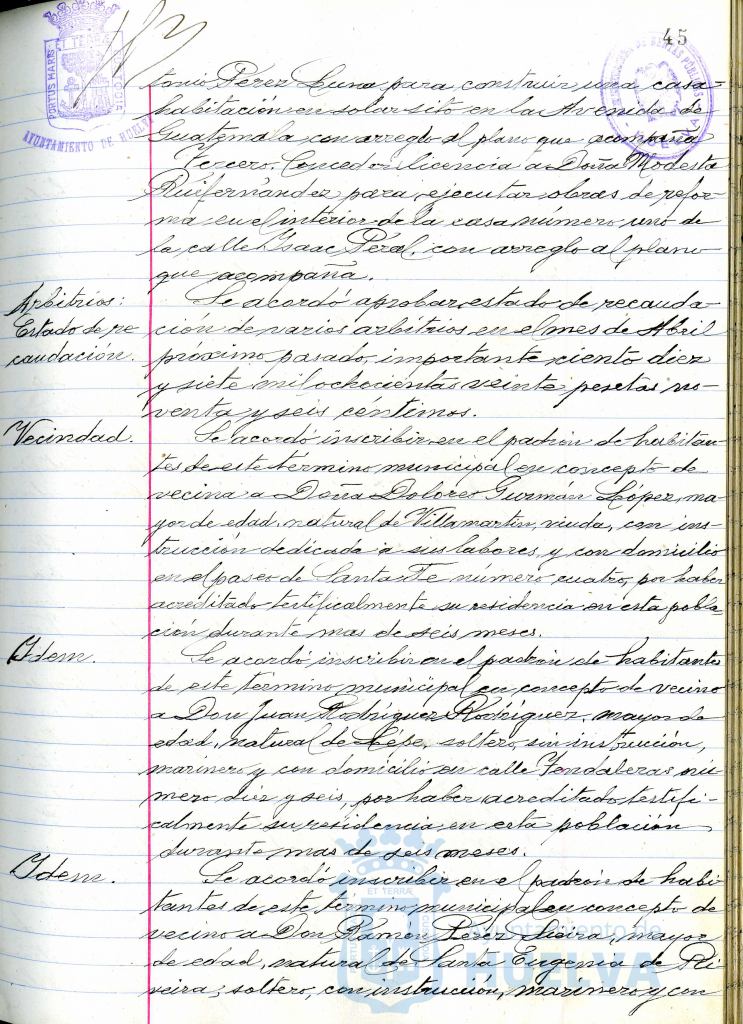 45
PORTUS MARIS
ET TERRÆ
AYUNTAMIENTO DE HUELVA
tonio Pérez Luna para construir una casa-
habitación en solar sito en la Avenida de
Guatemala con arreglo al plano que acompaña
Tercero. Conceder licencia a Doña Modesta
Ruifernández para ejecutar obras de refor-
ma en el interior de la casa número uno de
la calle Isaac Peral, con arreglo al plano
que acompaña.
Arbitrios:
Estado de re
caudación.
Se acordó aprobar estado de recauda-
ción de varios arbitrios en el mes de Abril
próximo pasado, importante ciento diez
y siete mil ochocientas veinte pesetas no-
venta y seis céntimos.
Vecindad.
Se acordó inscribir en el padrón de habitan-
tes de este término municipal en concepto de
vecina a Doña Dolores Guzmán López, ma-
yor de edad, natural de Villamartin, viuda, con ins-
trucción dedicada a sus labores, y con domicilio
en el paseo de Santa Fe número cuatro, por haber
acreditado testificalmente su residencia en esta pobla-
ción durante mas de seis meses.
Idem.
Se acordó inscribir en el padrón de habitantes
de este término municipal en concepto de vecino
a Don Juan Rodríguez Rodríguez, mayor de
edad, natural de Lepe, soltero, sin instrucción,
marinero y con domicilio en calle Tendaleras nú-
mero diez y seis, por haber acreditado testifi-
calmente su residencia en esta población
durante mas de seis meses.
Idem.
Se acordó inscribir en el padrón de habi-
tantes de este término municipal en concepto de
vecino a Don Ramón Pérez mayor
de edad, natural de Santa Eugenia de Ri-
veira, soltero, con instrucción, marinero y con
ET TERRÆ
Ayuntamiento de
HUELVA